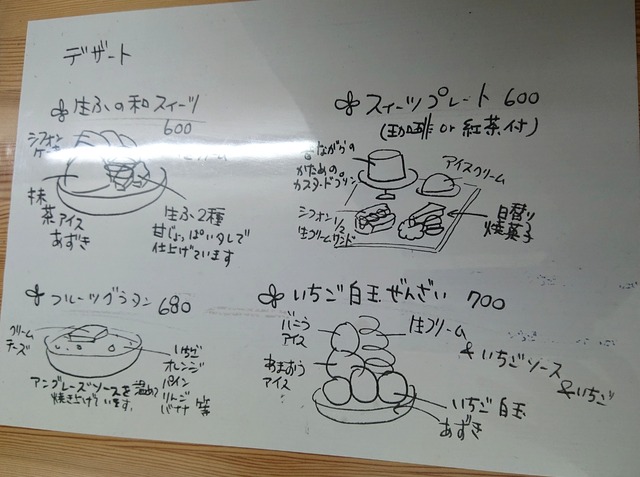 デザート
生ふの和スイーツ
600
シフォン
ケーキ
生クリーム
抹
茶アイス
あずき
生ふ2種
甘じょっぱいタレで
仕上げています
スイーツプレート 600
(珈琲 or 紅茶付)
昔ながらの
かための
カスタードプリン
アイスクリーム
シフォン1/2
生クリームサンド
日替り
焼菓子
フルーツグラタン 680
クリーム
チーズ
いちご
オレンジ
パイン
りんご
バナナ 等
アングレーズソースを温めて
焼き上げています。
いちご白玉ぜんざい 700
バニラ
アイス
あまおう
アイス
生クリーム
&いちごソース
&いちご
いちご白玉
あずき